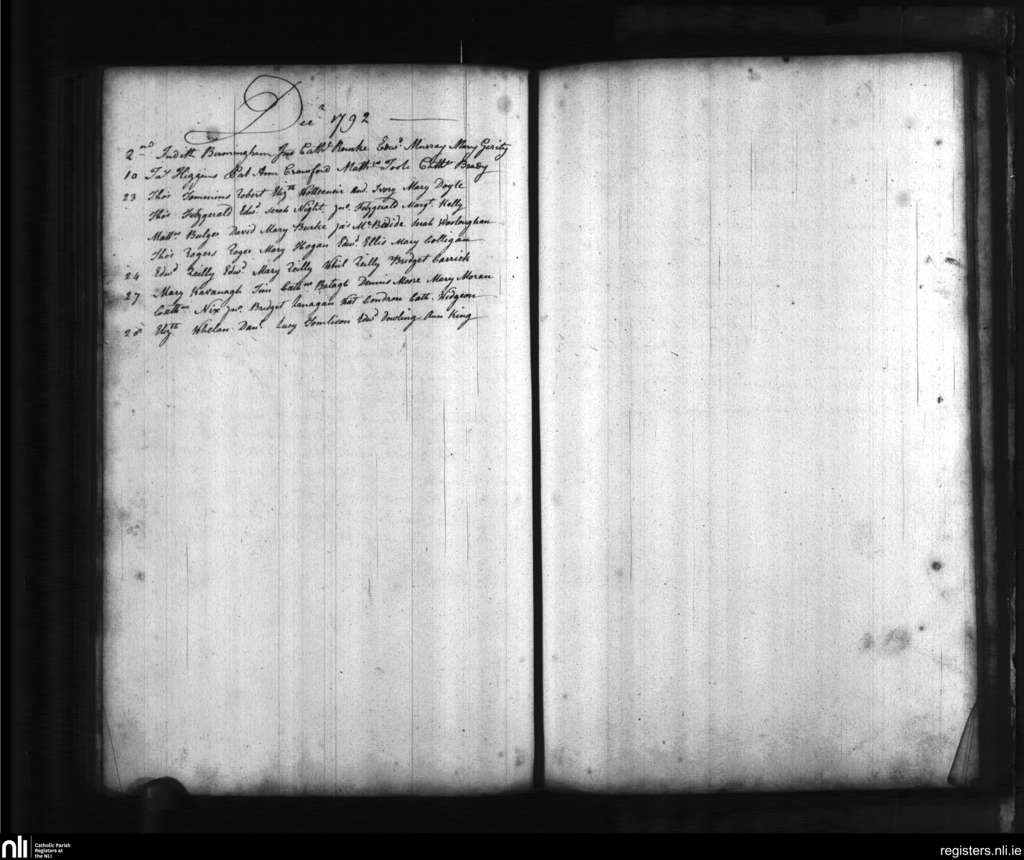 Decr 1792
2nd Judith Birmingham Jno Cathe Rourke Edwd Murray Mary Gerity
10 Jas Higgins Pat Ann Crawford Matthw Toole Cathe Brady
23 Thos Tommins Robert Elizth And. Ivory Mary Doyle
Thos Fitzgerald Edwd Sarah Night Jno Fitzgerald Margt Kelly
Mattw Bulger David Mary Burke Jas Sarah Woolonghan
Thos Rogers Roger Mary Hogan Edwd Ellis Mary Colligan
24 Edwd Reilly Edwd Mary Reilly Reilly Bridget Carrick
27 Mary Kavanagh Tim Cathne Betagh Dennis Moore Mary Moran
Cathne Nix Jno Bridget Flanagan Condron Cath. Widgeon
28 Elizth Whelan Danl Lucy Tomlison Edwd Dowling Ann King
nli
Catholic Parish
Registers at
the NLI
registers.nli.ie